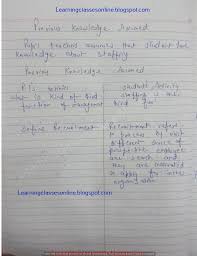 Learningclassesonline.blogspot.com
Previous Knowledge Assumed
Pupil teacher assumes that student have
knowledge about Staffing
Previous Knowledge Assumed
PT's activity Student Activity
what is kind of third Staffing is the
function of management third fun
Define Recruitment Recruitment refers
to process of
different source of
prospective employee
are search and
they are motivated
to apply for the
organization
Learningclassesonline.blogspot.com